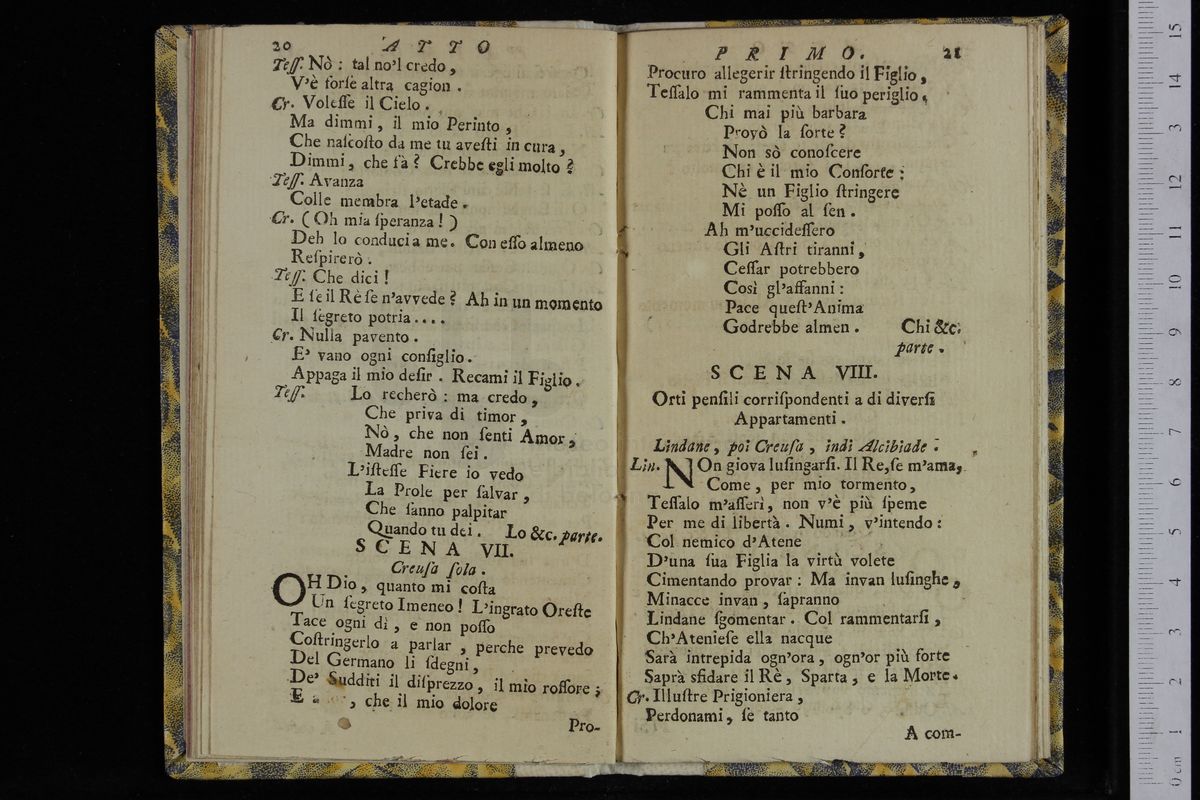 20 ATTO
Teſſ. Nò : tal no'l credo ,
V'è forſe altra cagion .
Cr. Voleſſe il Cielo .
Ma dimmi , il mio Perinto ,
Che naſcoſto da me tu aveſti in cura ,
Dimmi , che fà ? Crebbe egli molto ?
Teſſ. Avanza
Colle membra l'etade .
Cr. ( Oh mia ſperanza ! )
Deh lo conduci a me . Con eſſo almeno
Reſpirerò .
Teſſ. Che dici !
E ſe il Rè ſe n'avvede ? Ah in un momento
Il ſegreto potria ....
Cr. Nulla pavento .
E' vano ogni conſiglio .
Appaga il mio deſir . Recami il Figlio .
Teſſ. Lo recherò : ma credo ,
Che priva di timor ,
Nò , che non ſenti Amor ,
Madre non ſei .
L'iſteſſe Fiere io vedo
La Prole per ſalvar ,
Che ſanno palpitar
Quando tu dei . Lo &c. parte.
SCENA VII.
Creuſa ſola .
OH Dio , quanto mi coſta
Un ſegreto Imeneo ! L'ingrato Oreſte
Tace ogni dì , e non poſſo
Coſtringerlo a parlar , perche prevedo
Del Germano li ſdegni ,
De' Sudditi il diſprezzo , il mio roſſore ;
E , che il mio dolore
Pro-
PRIMO. 21
Procuro allegerir ſtringendo il Figlio ,
Teſſalo mi rammenta il ſuo periglio .
Chi mai più barbara
Provò la ſorte ?
Non sò conoſcere
Chi è il mio Conſorte ;
Nè un Figlio ſtringere
Mi poſſo al ſen .
Ah m'uccideſſero
Gli Aſtri tiranni ,
Ceſſar potrebbero
Così gl'affanni :
Pace queſt'Anima
Godrebbe almen . Chi &c.
parte .
SCENA VIII.
Orti penſili corriſpondenti a di diverſi
Appartamenti .
Lindane , poi Creuſa , indi Alcibiade .
Lin. NOn giova luſingarſi. Il Re, ſe m'ama,
Come , per mio tormento ,
Teſſalo m'aſſerì , non v'è più ſpeme
Per me di libertà . Numi , v'intendo :
Col nemico d'Atene
D'una ſua Figlia la virtù volete
Cimentando provar : Ma invan luſinghe ,
Minacce invan , ſapranno
Lindane ſgomentar . Col rammentarſi ,
Ch'Atenieſe ella nacque
Sarà intrepida ogn'ora , ogn'or più forte
Saprà sfidare il Rè , Sparta , e la Morte .
Cr. Illuſtre Prigioniera ,
Perdonami , ſe tanto
A com-